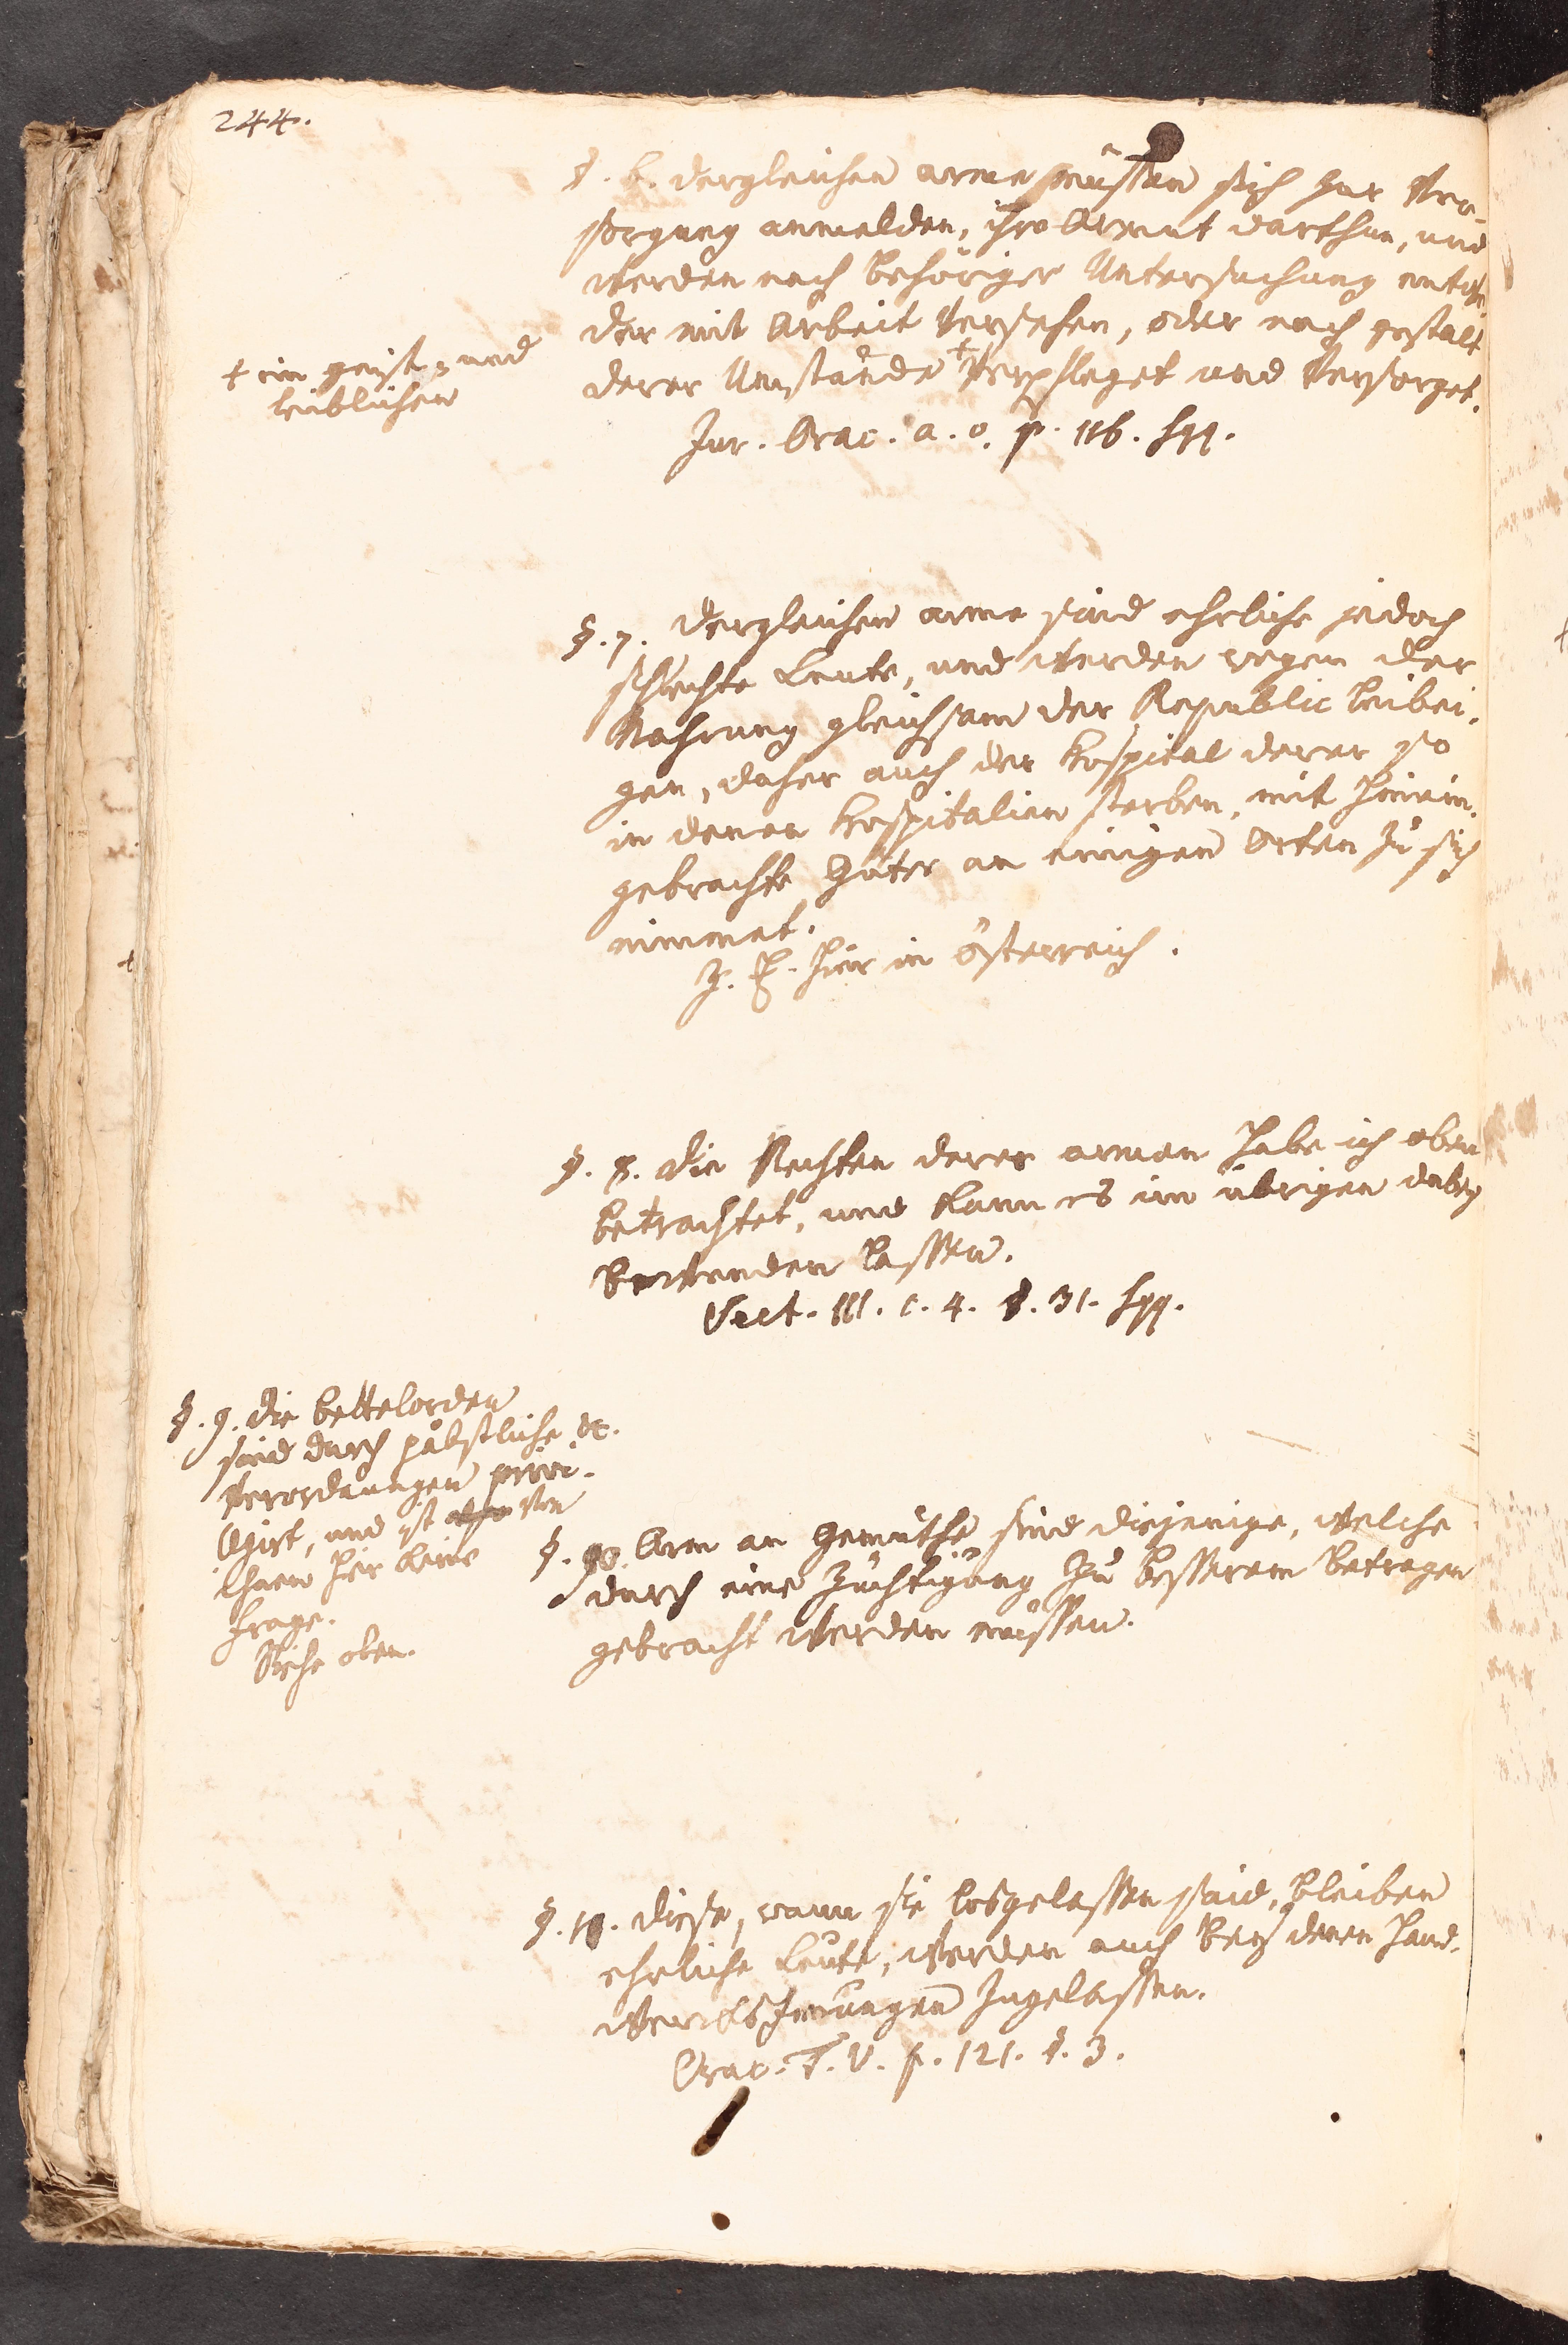 244.
§. 6. dergleichen arme müssen sich zur Ver-
sorgung anmelden, ihre Armut darthun, und
werden nach behöriger Untersuchung entwe-
der mit Arbeit versehen, oder nach gestalt
derer Umstände + verpfleget und versorget.
+ im geist- und
leiblichen
Jur. Orac. a. o. p. 116. sqq.
§. 7. dergleichen arme sind ehrliche jedoch
schlechte Leute, und werden wegen der
Nahrung gleichsam der Republic leibei-
gen, daher auch der Hospital derer so
in denen Hospitalien sterben, mit hinein-
gebrachte Güter an einigen Orten zu sich
nimmet.
Z. E. hier in Österreich.
§. 8. die Rechten derer armen habe ich oben
betrachtet, und kann es im übrigen dabey
bewenden lassen.
Sect. III. c. 4. §. 31. sqq.
§. 9. die bettelorden
sind durch päbstliche etc.
Verordnungen privi-
legirt, und ist von
ihnen hier keine
frage.
Siehe oben.
§. 10. Arm an Gemüthe sind diejenige, welche
durch eine Züchtigung zu besserem betragen
gebracht werden müssen.
§. 11. diese, wann sie losgelassen sind, bleiben
ehrliche Leute, werden auch bey denen Hand-
wercks Innungen zugelassen.
Orac. T. V. p. 121. §. 3.